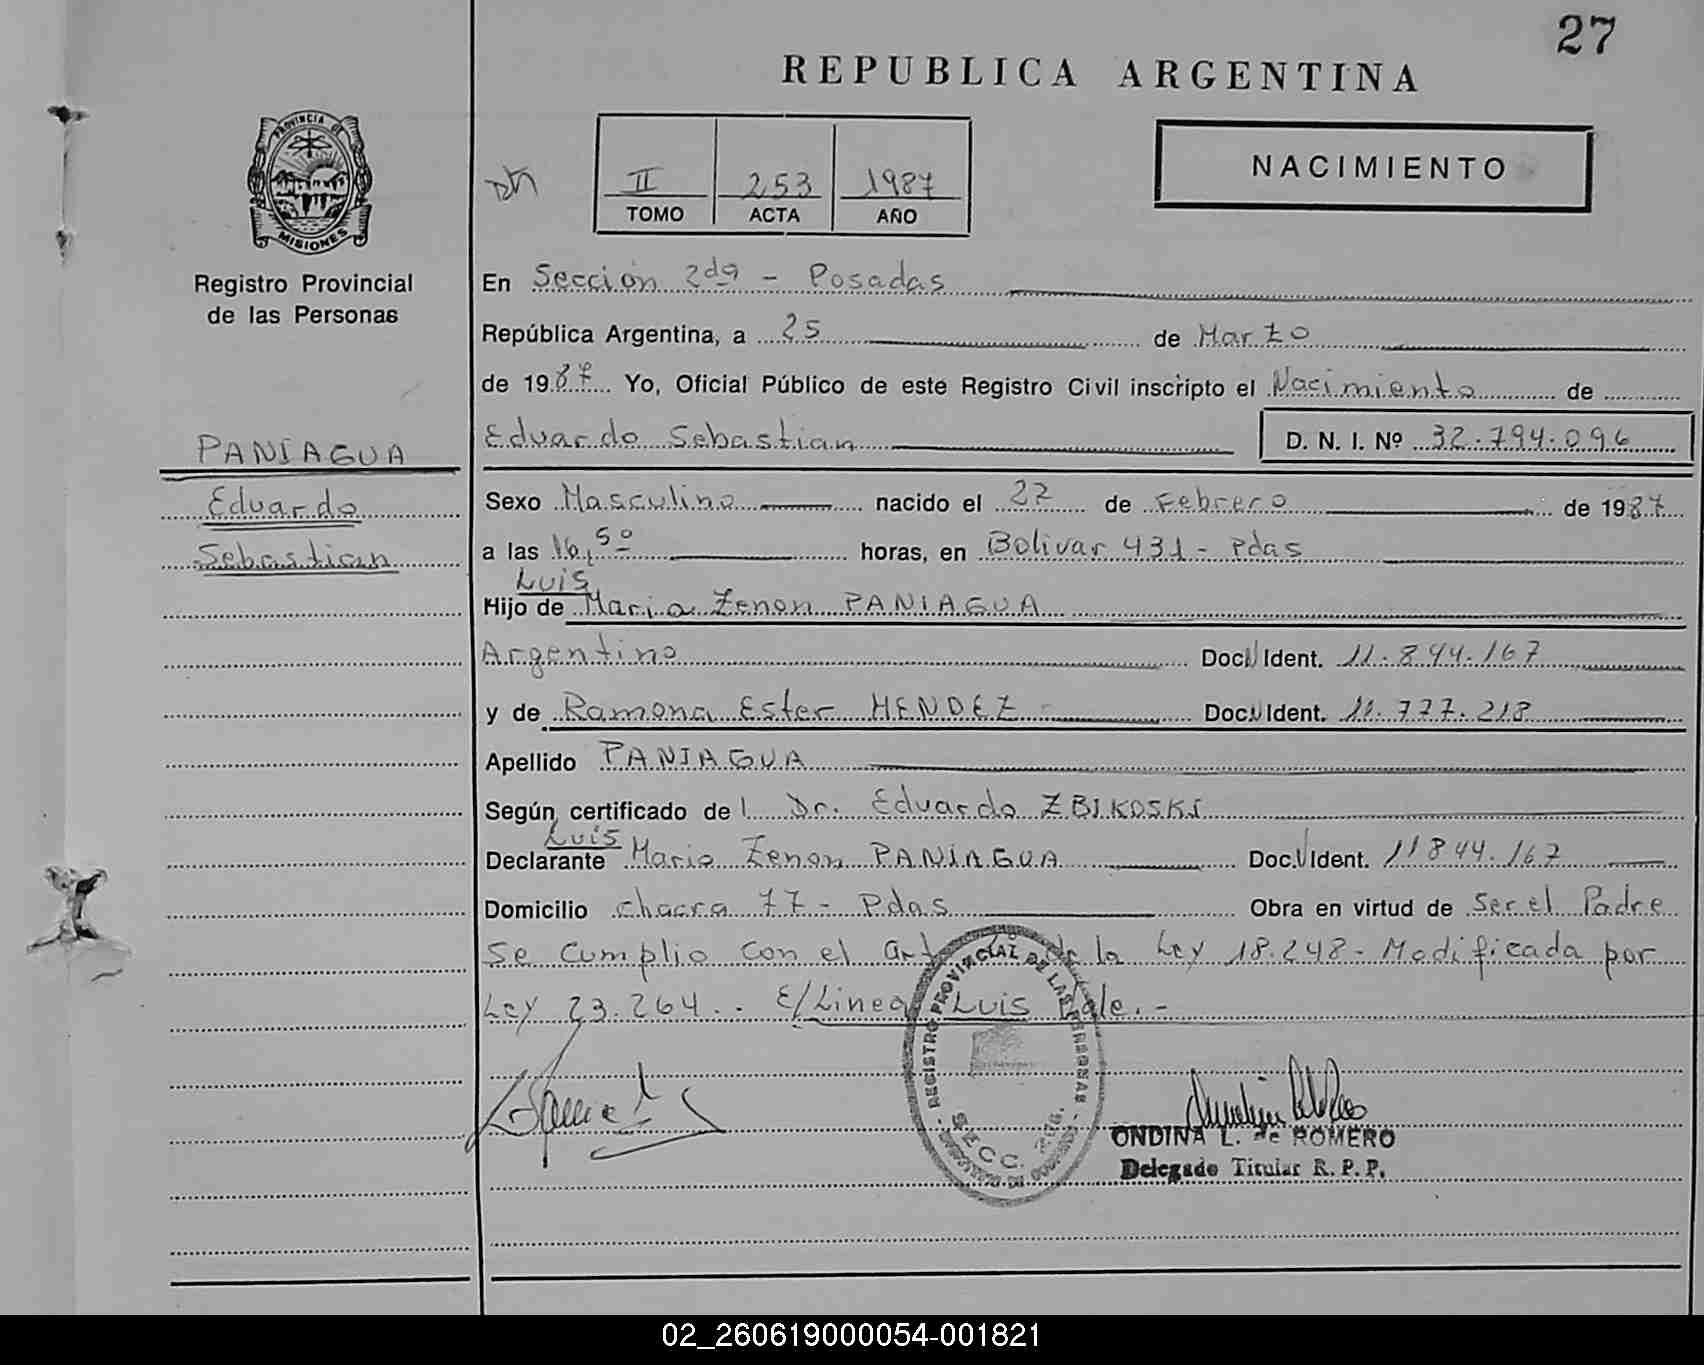 27
REPUBLICA ARGENTINA
PROVINCIA DE
MISIONES
Registro Provincial
de las Personas
II 253 1987
TOMO ACTA AÑO
NACIMIENTO
En Sección 2da - Posadas
República Argentina, a 25 de Marzo
de 1987 Yo, Oficial Público de este Registro Civil inscripto el Nacimiento de
PANIAGUA
Eduardo
Sebastian
Eduardo Sebastian D. N. I. Nº 32.794.096
Sexo Masculino nacido el 27 de Febrero de 1987
a las 16,50 horas, en Bolivar 431 - Pdas
Luis
Hijo de Mario Zenon PANIAGUA
Argentino Doc. Ident. 11.844.167
y de Ramona Ester MENDEZ Doc. Ident. 11.777.218
Apellido PANIAGUA
Según certificado de l Dr. Eduardo ZBIKOSKI
Luis
Declarante Mario Zenon PANIAGUA Doc. Ident. 11844.167
Domicilio chacra 77 - Pdas Obra en virtud de Ser el Padre
Se Cumplio con el art de la Ley 18.248 - Modificada por
Ley 23.264 .- E/Linea Luis Vale. -
REGISTRO PROVINCIAL DE LAS PERSONAS
SECC. 2da.
ONDINA L. de ROMERO
Delegado Titular R. P. P.
02_260619000054-001821